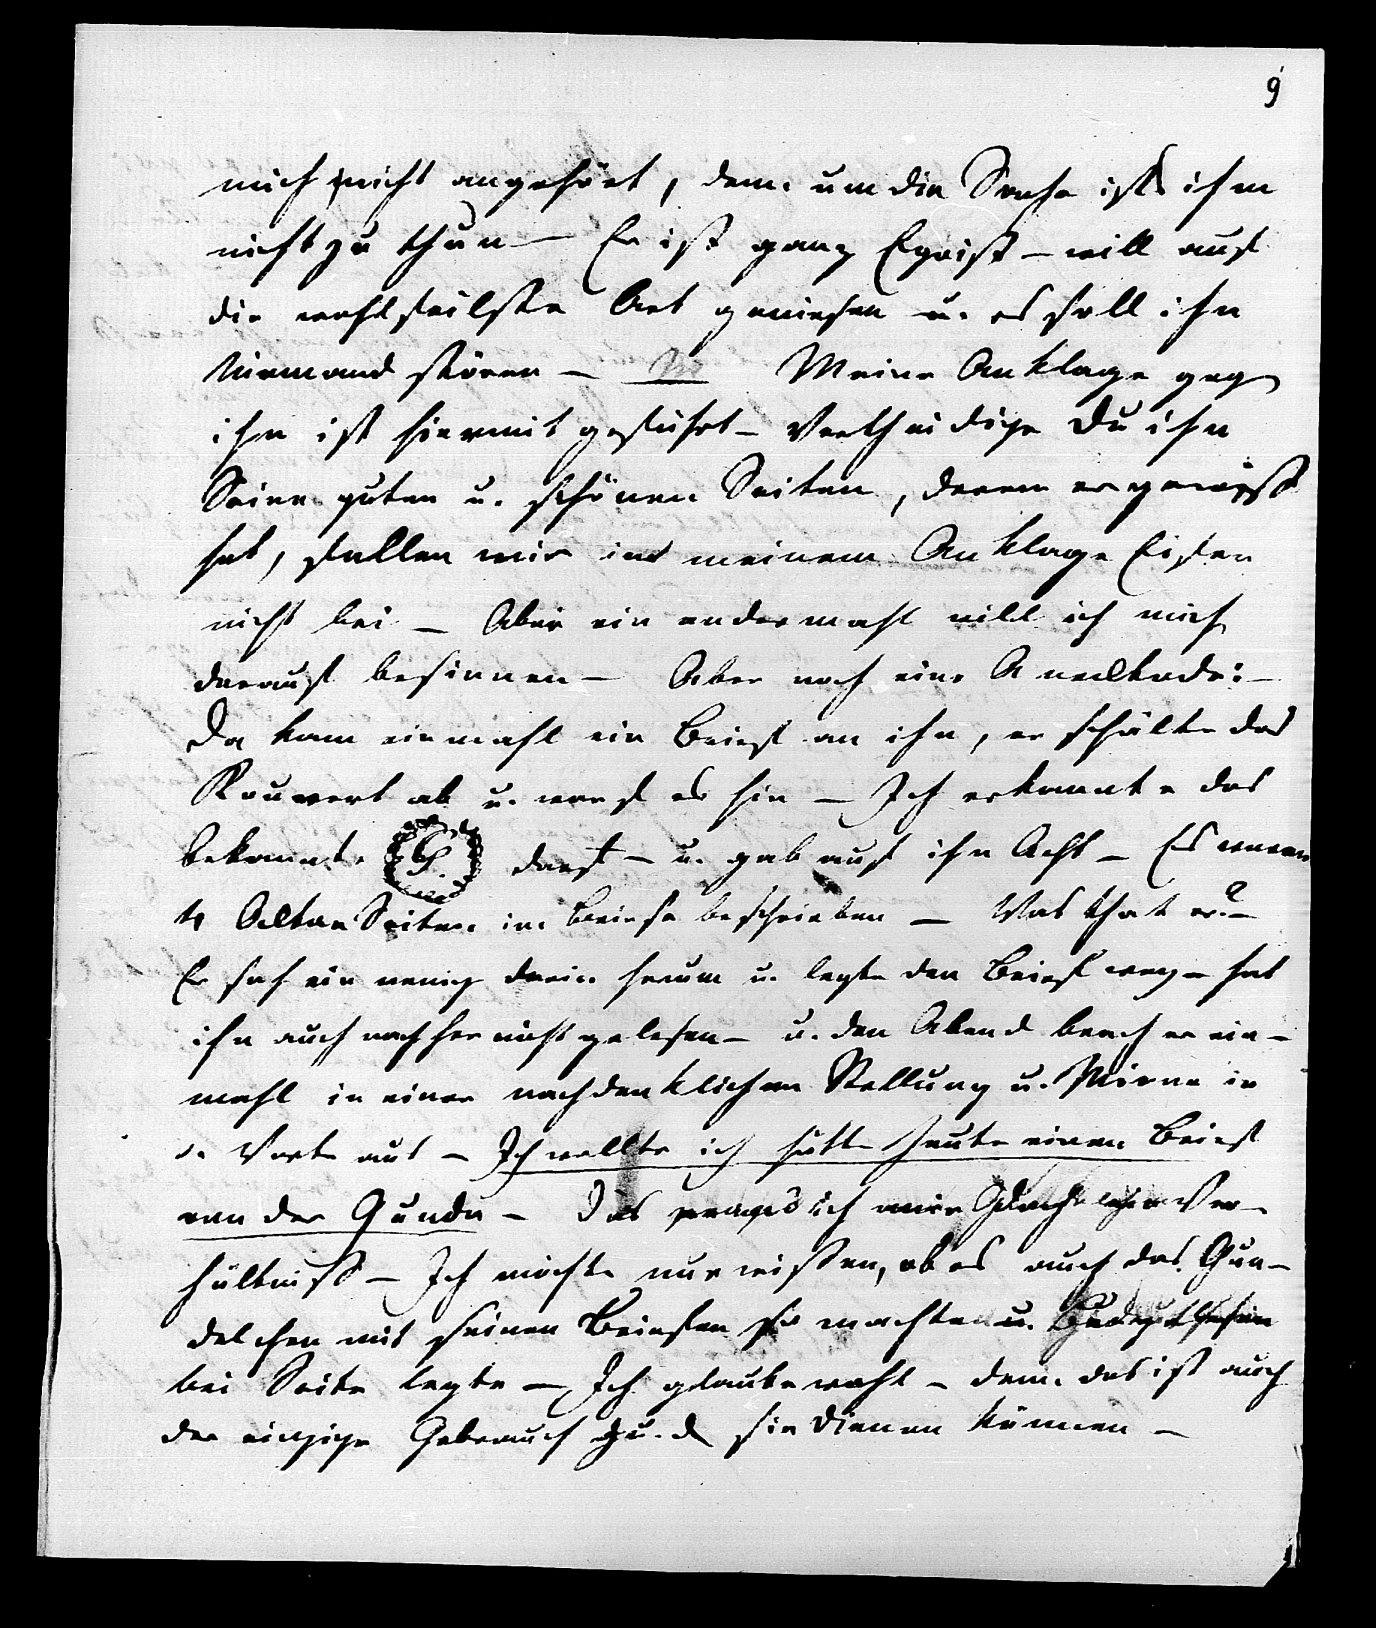 9
mich nicht angehört, denn um die Sache ists ihm
nicht zu thun – Er ist ganz Egoist – will auf
die wohlfeilste Art geniesen u. es soll ihn
Niemand stören – Meine Anklage geg
ihn ist hiermit geführt – Vertheidige Du ihn
Seine guten u. schönen Seiten, deren er gewiß
hat, fallen mir in meinem Anklage Eifer
nicht bei – Aber ein andermahl will ich mich
darauf besinnen – Aber noch eine Anecktode: –
Da kam einmahl ein Brief an ihn, er schälte das
Kouvert ab u. warf es hin – Ich erkannte das
bekannte G. darauf – u. gab auf ihn Acht – Es waren
4 Acktav Seiten im Briefe beschrieben – Was that er? –
Er sah ein wenig darin herum u. legte den Brief weg – hat
ihn auch nachher nicht gelesen – u. den Abend brach er ein-
mahl in einer nachdenklichen Stellung u. Miene in
d. Worte aus – Ich wollte ich hätte heute einen Brief
von der Gunda – Das ich mir Ver-
hältniß – Ich möchte nur wißen, ob es auch das Gun-
delchen mit seinen Briefen so machte u.
bei Seite legte – Ich glaube wohl – denn das ist auch
der einzige Gebrauch zu d sie dienen können –